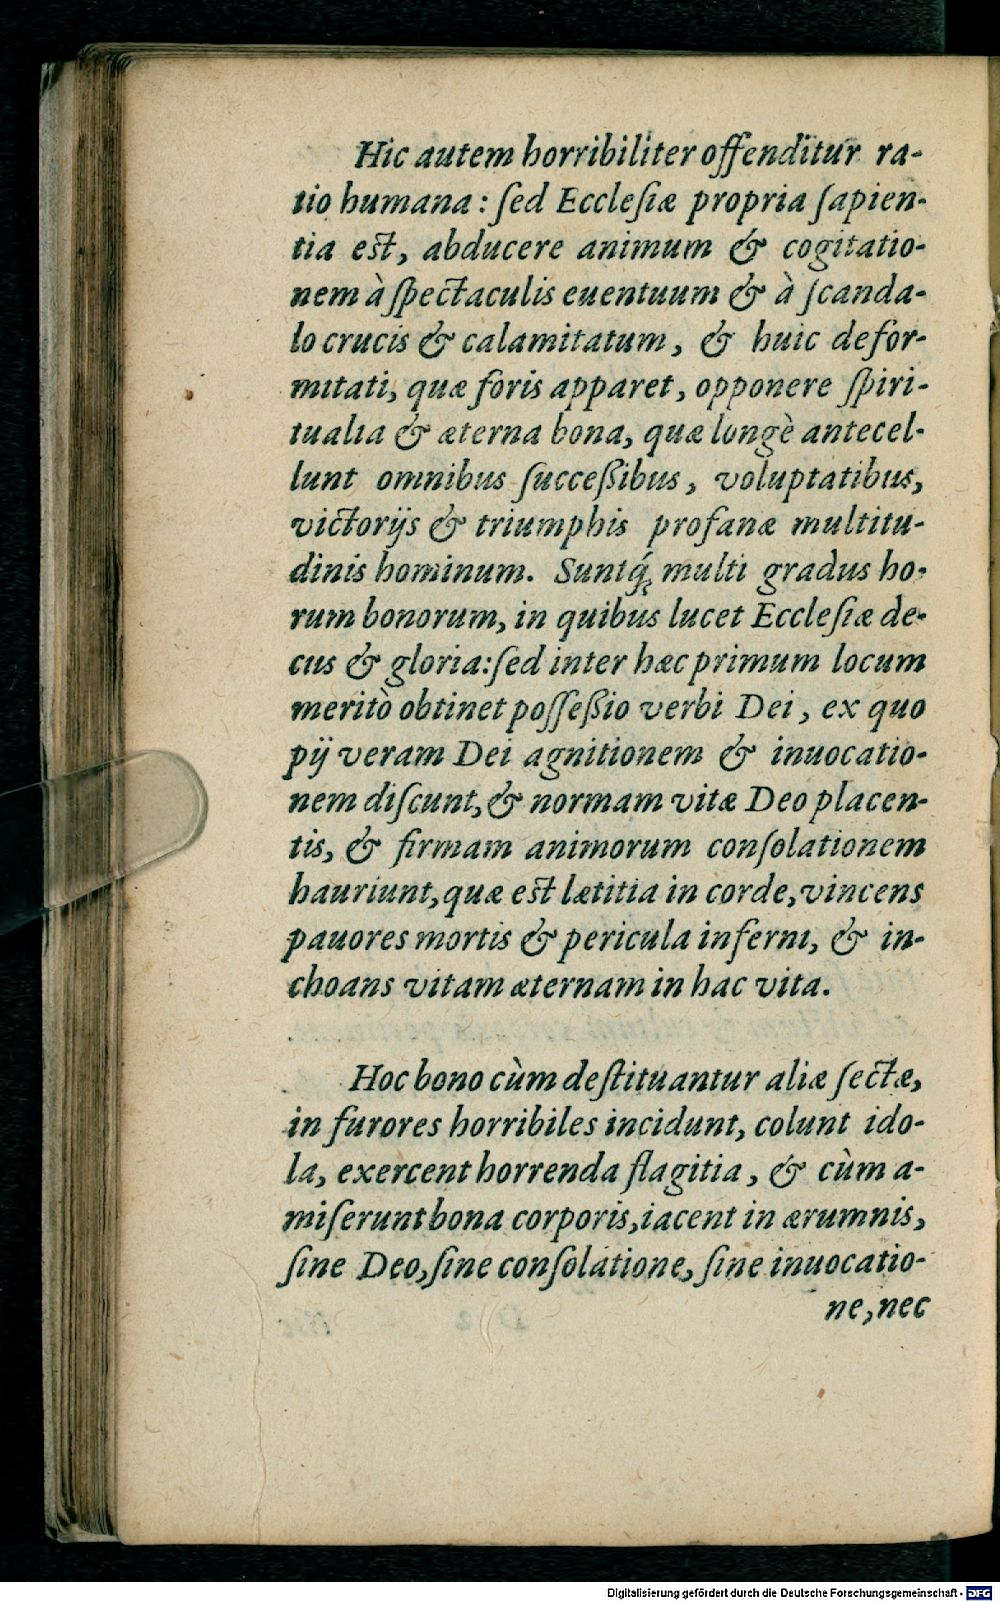 Hic autem horribiliter offenditur ra-
tio humana : ſed Eccleſiæ propria ſapien-
tia eſt, abducere animum & cogitatio-
nem à ſpectaculis euentuum & à ſcanda-
lo crucis & calamitatum, & huic defor-
mitati, quæ foris apparet, opponere ſpiri-
tualia & æterna bona, quæ longè antecel-
lunt omnibus ſucceßibus, voluptatibus,
victorijs & triumphis profanæ multitu-
dinis hominum. Suntq́ꝫ multi gradus ho-
rum bonorum, in quibus lucet Eccleſiæ de-
cus & gloria:ſed inter hæc primum locum
meritò obtinet poſſeßio verbi Dei, ex quo
pij veram Dei agnitionem & inuocatio-
nem diſcunt,& normam vitæ Deo placen-
tis, & firmam animorum conſolationem
hauriunt,quæ eſt lætitia in corde,vincens
pauores mortis & pericula inferni, & in-
choans vitam æternam in hac vita.
Hoc bono cùm deſtituantur aliæ ſectæ,
in furores horribiles incidunt, colunt ido-
la, exercent horrenda flagitia, & cùm a-
miſerunt bona corporis,iacent in ærumnis,
ſine Deo,ſine conſolatione, ſine inuocatio-
ne,nec
Digitalisierung gefördert durch die Deutsche Forschungsgemeinschaft - DFG